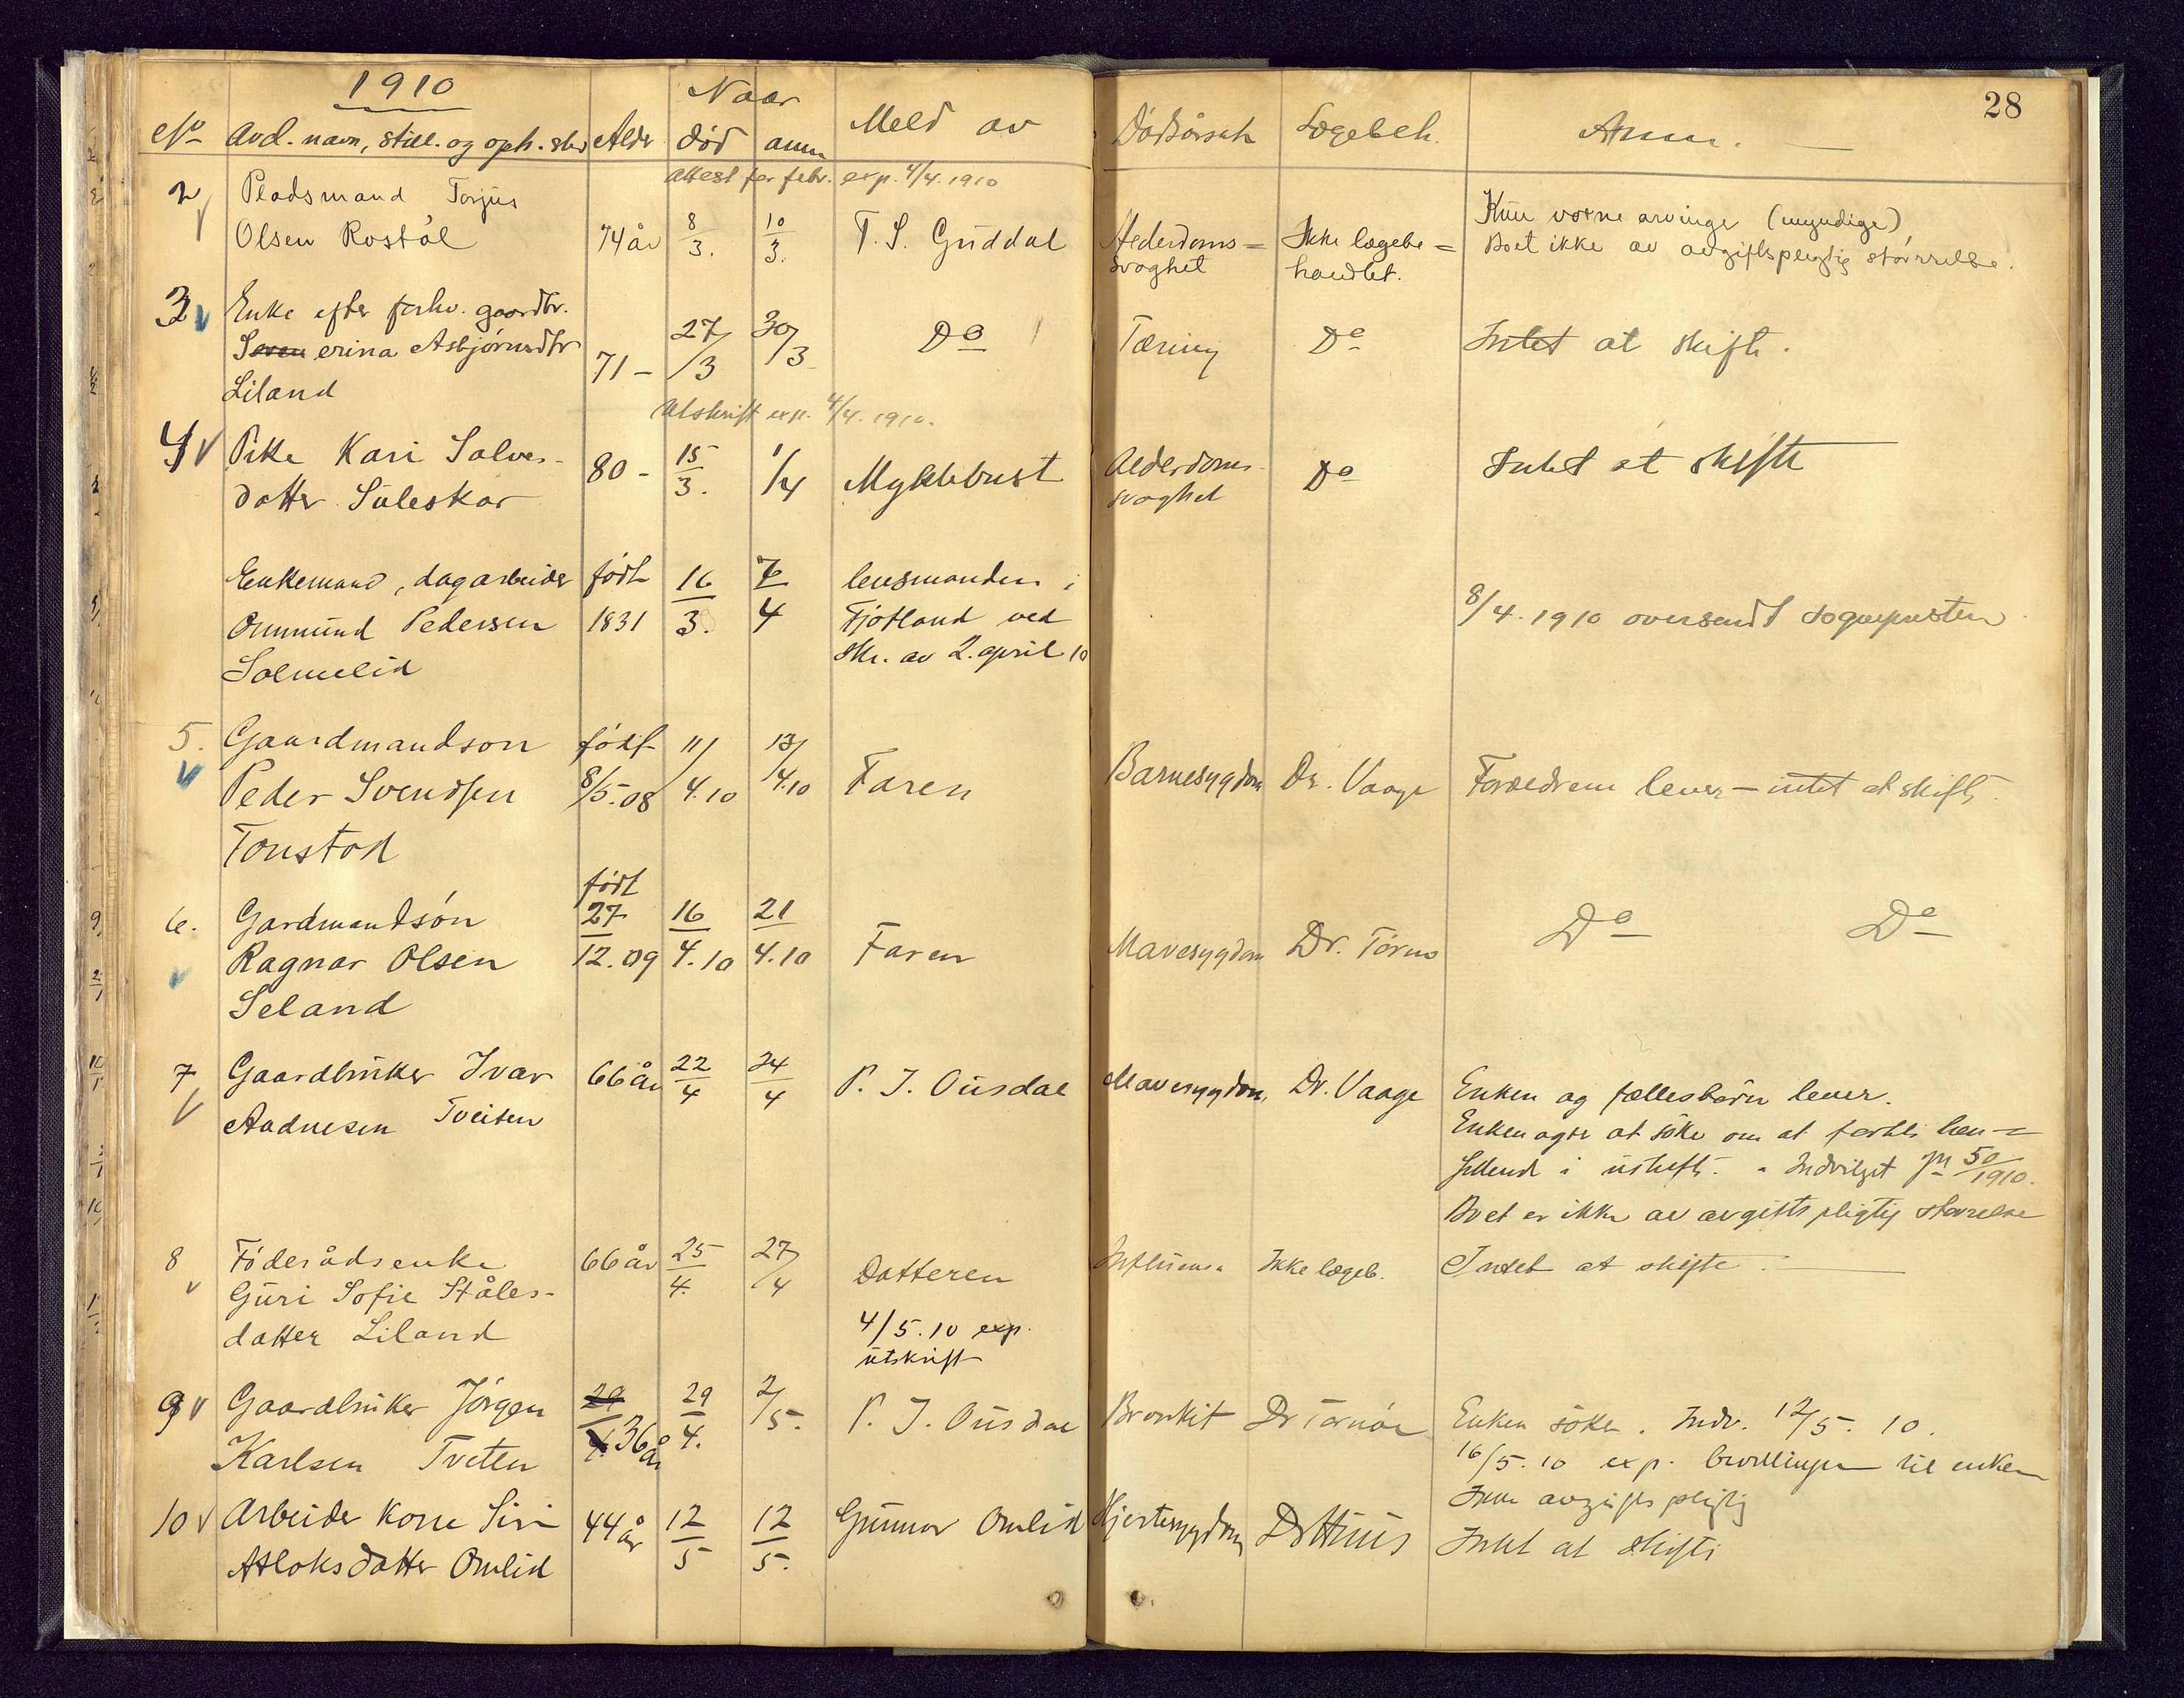 1910
28
No Avd. navn, still. og oph. sted Alder Naar død anm Meld av Dødsårsak Lægebeh. Anm.
Attest for febr. exp. 4/4. 1910
2 Pladsmand Torjus
Olsen Rostøl 74 år 8/3. 10/3. T. S. Guddal Alderdoms= Ikke lægebe= Kun voxne arvinge (myndige)
svaghet handlet. Boet ikke av avgiftspligtig størrelse.
3 Enke efter forhv. gaardbr.
Severina Asbjørnsdtr 71 - 27/3 30/3 Do Tæring Do Intet at skifte.
Liland
Utskrift exp. 4/4. 1910.
4 Pike Kari Salves-
datter Suleskar 80 - 15/3. 1/4 Myklebust Alderdoms- Do Intet at skifte
svaghet
Enkemand, dagarbeider født 16/3. 7/4 lensmanden i
Ommund Pedersen 1831 Fjotland ved 8/4. 1910 oversendt sognepresten
Solmelid skr. av 2. april 10
5. Gaardmandsøn født 11/4.10 13/4.10
Peder Svendsen 8/5.08 Faren Barnesygdom Dr. Vaage Forældrene lever - intet at skifte
Tonstad
6. Gardmandsøn født 27/12.09 16/4.10 21/4.10
Ragnar Olsen Faren Mavesygdom Dr. Do Do
Seland
7 Gaardbruker Ivar 66 år 22/4 24/4 P. J. Ousdal Mavesygdom, Dr. Vaage Enken og fællesbørn lever.
Aadnesen Tveiten Enken agter at søke om at forbli hen-
siddend i uskifte. - Indvilget 50/1910.
Boet er ikke av avgiftspligtig størrelse
8 Føderådsenke 66 år 25/4. 27/4 Datteren Influensa Ikke lægeb. Intet at skifte.
Guri Sofie Ståles-
datter Liland 4/5.10 exp.
utskrift
9 Gaardbruker Jørgen 29/4. 36 år 29/4. 2/5. P. J. Ousdal Bronkit Dr Enken søker. Indv. 12/5. 10.
Karlsen Tveiten 16/5.10 exp. bevillingen til enken
Ikke avgiftspligtig
10 Arbeider kone Siri 44 år 12/5 12/5. Gunnar Omlid Hjertesygdom Dr Intet at skifte
Atlaksdatter Omlid